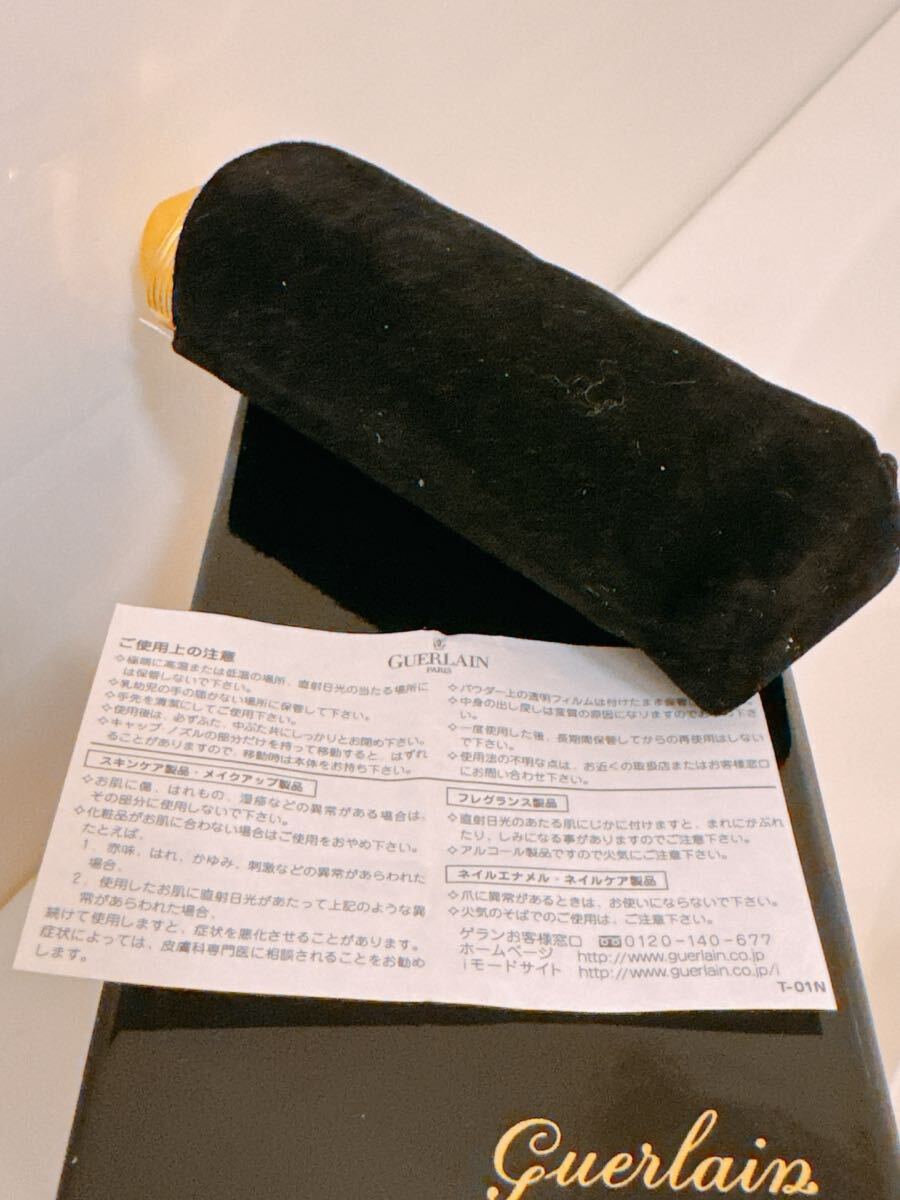 GUERLAIN
PARIS
ご使用上の注意
✧極端に高温または低温の場所、直射日光の当たる場所に
は保管しないで下さい。
✧乳幼児の手の届かない場所に保管して下さい。
✧手先を清潔にしてご使用下さい。
✧使用後は、必ずふた、中ぶた共にしっかりとお閉め下さい。
✧キャップ・ノズルの部分だけを持って移動すると、はずれ
ることがありますので、移動時は本体をお持ち下さい。
スキンケア製品・メイクアップ製品
✧お肌に傷、はれもの、湿疹などの異常がある場合は、
その部分に使用しないで下さい。
✧化粧品がお肌に合わない場合はご使用をおやめ下さい。
たとえば、
1．赤味、はれ、かゆみ、刺激などの異常があらわれた
場合、
2．使用したお肌に直射日光があたって上記のような異
常があらわれた場合、
続けて使用しますと、症状を悪化させることがあります。
症状によっては、皮膚科専門医に相談されることをお勧め
します。
✧パウダー上の透明フィルムは付けたまま保管
✧中身の出し戻しは変質の原因になりますので
い。
✧一度使用した後、長期間保管してからの再使用はしない
で下さい。
✧使用法の不明な点は、お近くの取扱店またはお客様窓口
にお問い合わせ下さい。
フレグランス製品
✧直射日光のあたる肌にじかに付けますと、まれにかぶれ
たり、しみになる事がありますのでご注意下さい。
✧アルコール製品ですので火気にご注意下さい。
ネイルエナメル・ネイルケア製品
✧爪に異常があるときは、お使いにならないで下さい。
✧火気のそばでのご使用は、ご注意下さい。
ゲランお客様窓口 0120-140-677
ホームページ http://www.guerlain.co.jp
iモードサイト http://www.guerlain.co.jp/i
T-01N
Guerlain